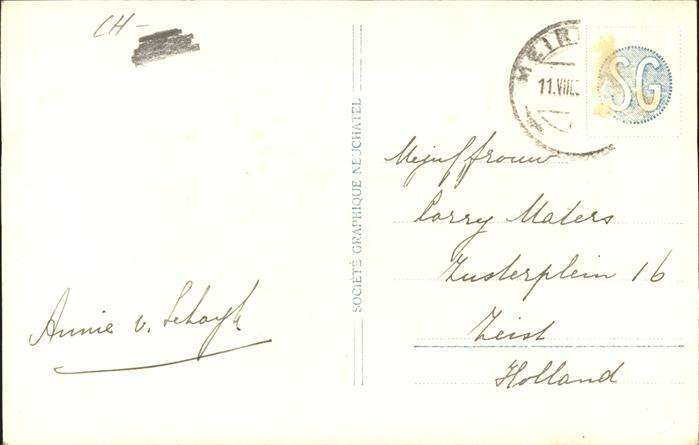 CH-
MEIRI
11.VIII.
SG
SOCIÉTÉ GRAPHIQUE NEUCHATEL
Mejuffrouw
Corry Maters
Zusterplein 16
Zeist
Holland
Annie v. Schayk